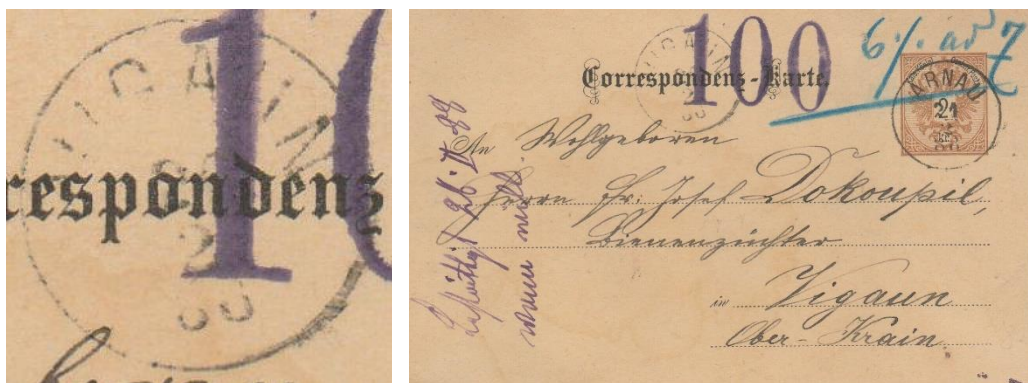 VIGAUN
respondenz
100
6 % ad 7
Correspondenz-Karte.
VIGAUN
ARNAU
21
An Wohlgeboren
Herrn Hr. Josef Dokoupil,
Bienenzüchter
in Vigaun
Ober-Krain.